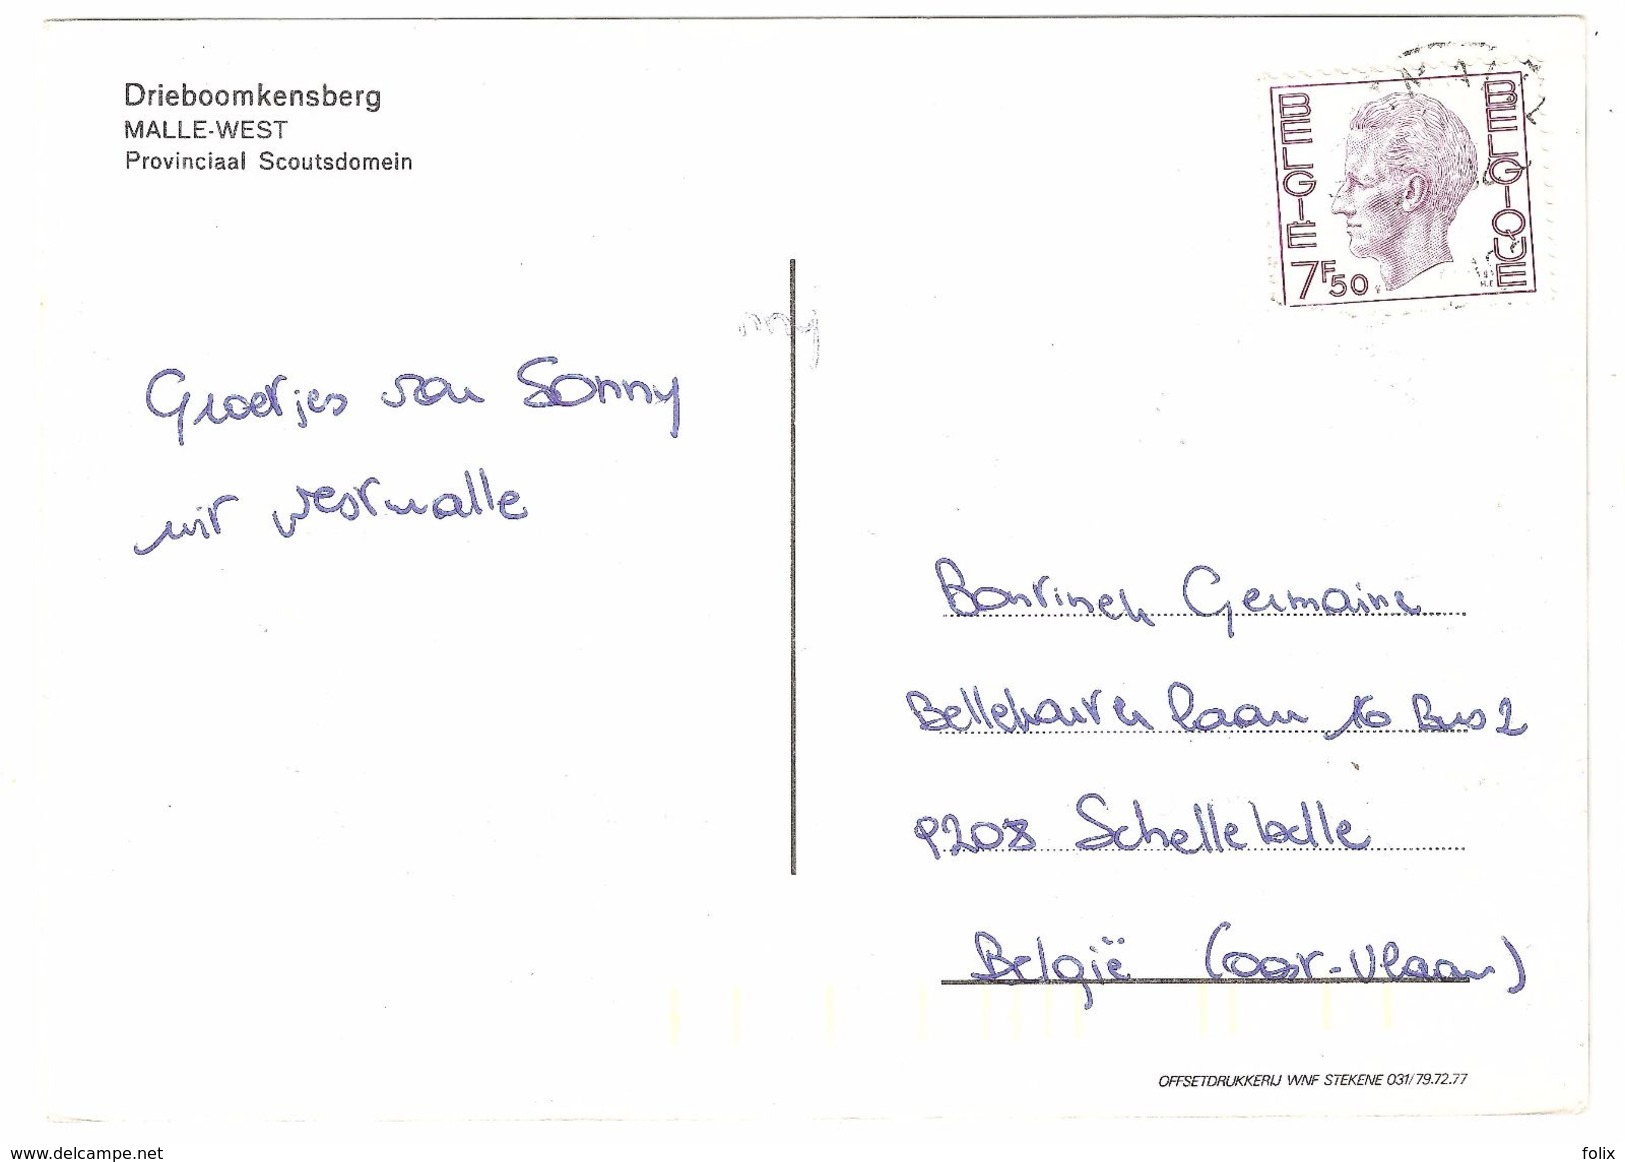 Drieboomkensberg
MALLE-WEST
Provinciaal Scoutsdomein
BELGIË
BELGIQUE
7F50
Groetjes van Sonny
uit westmalle
Germaine
laan 16 Bus 2
9208 Schellebelle
België (oost-Vlaan)
OFFSETDRUKKERIJ WNF STEKENE 031/79.72.77
www.delcampe.net
folix